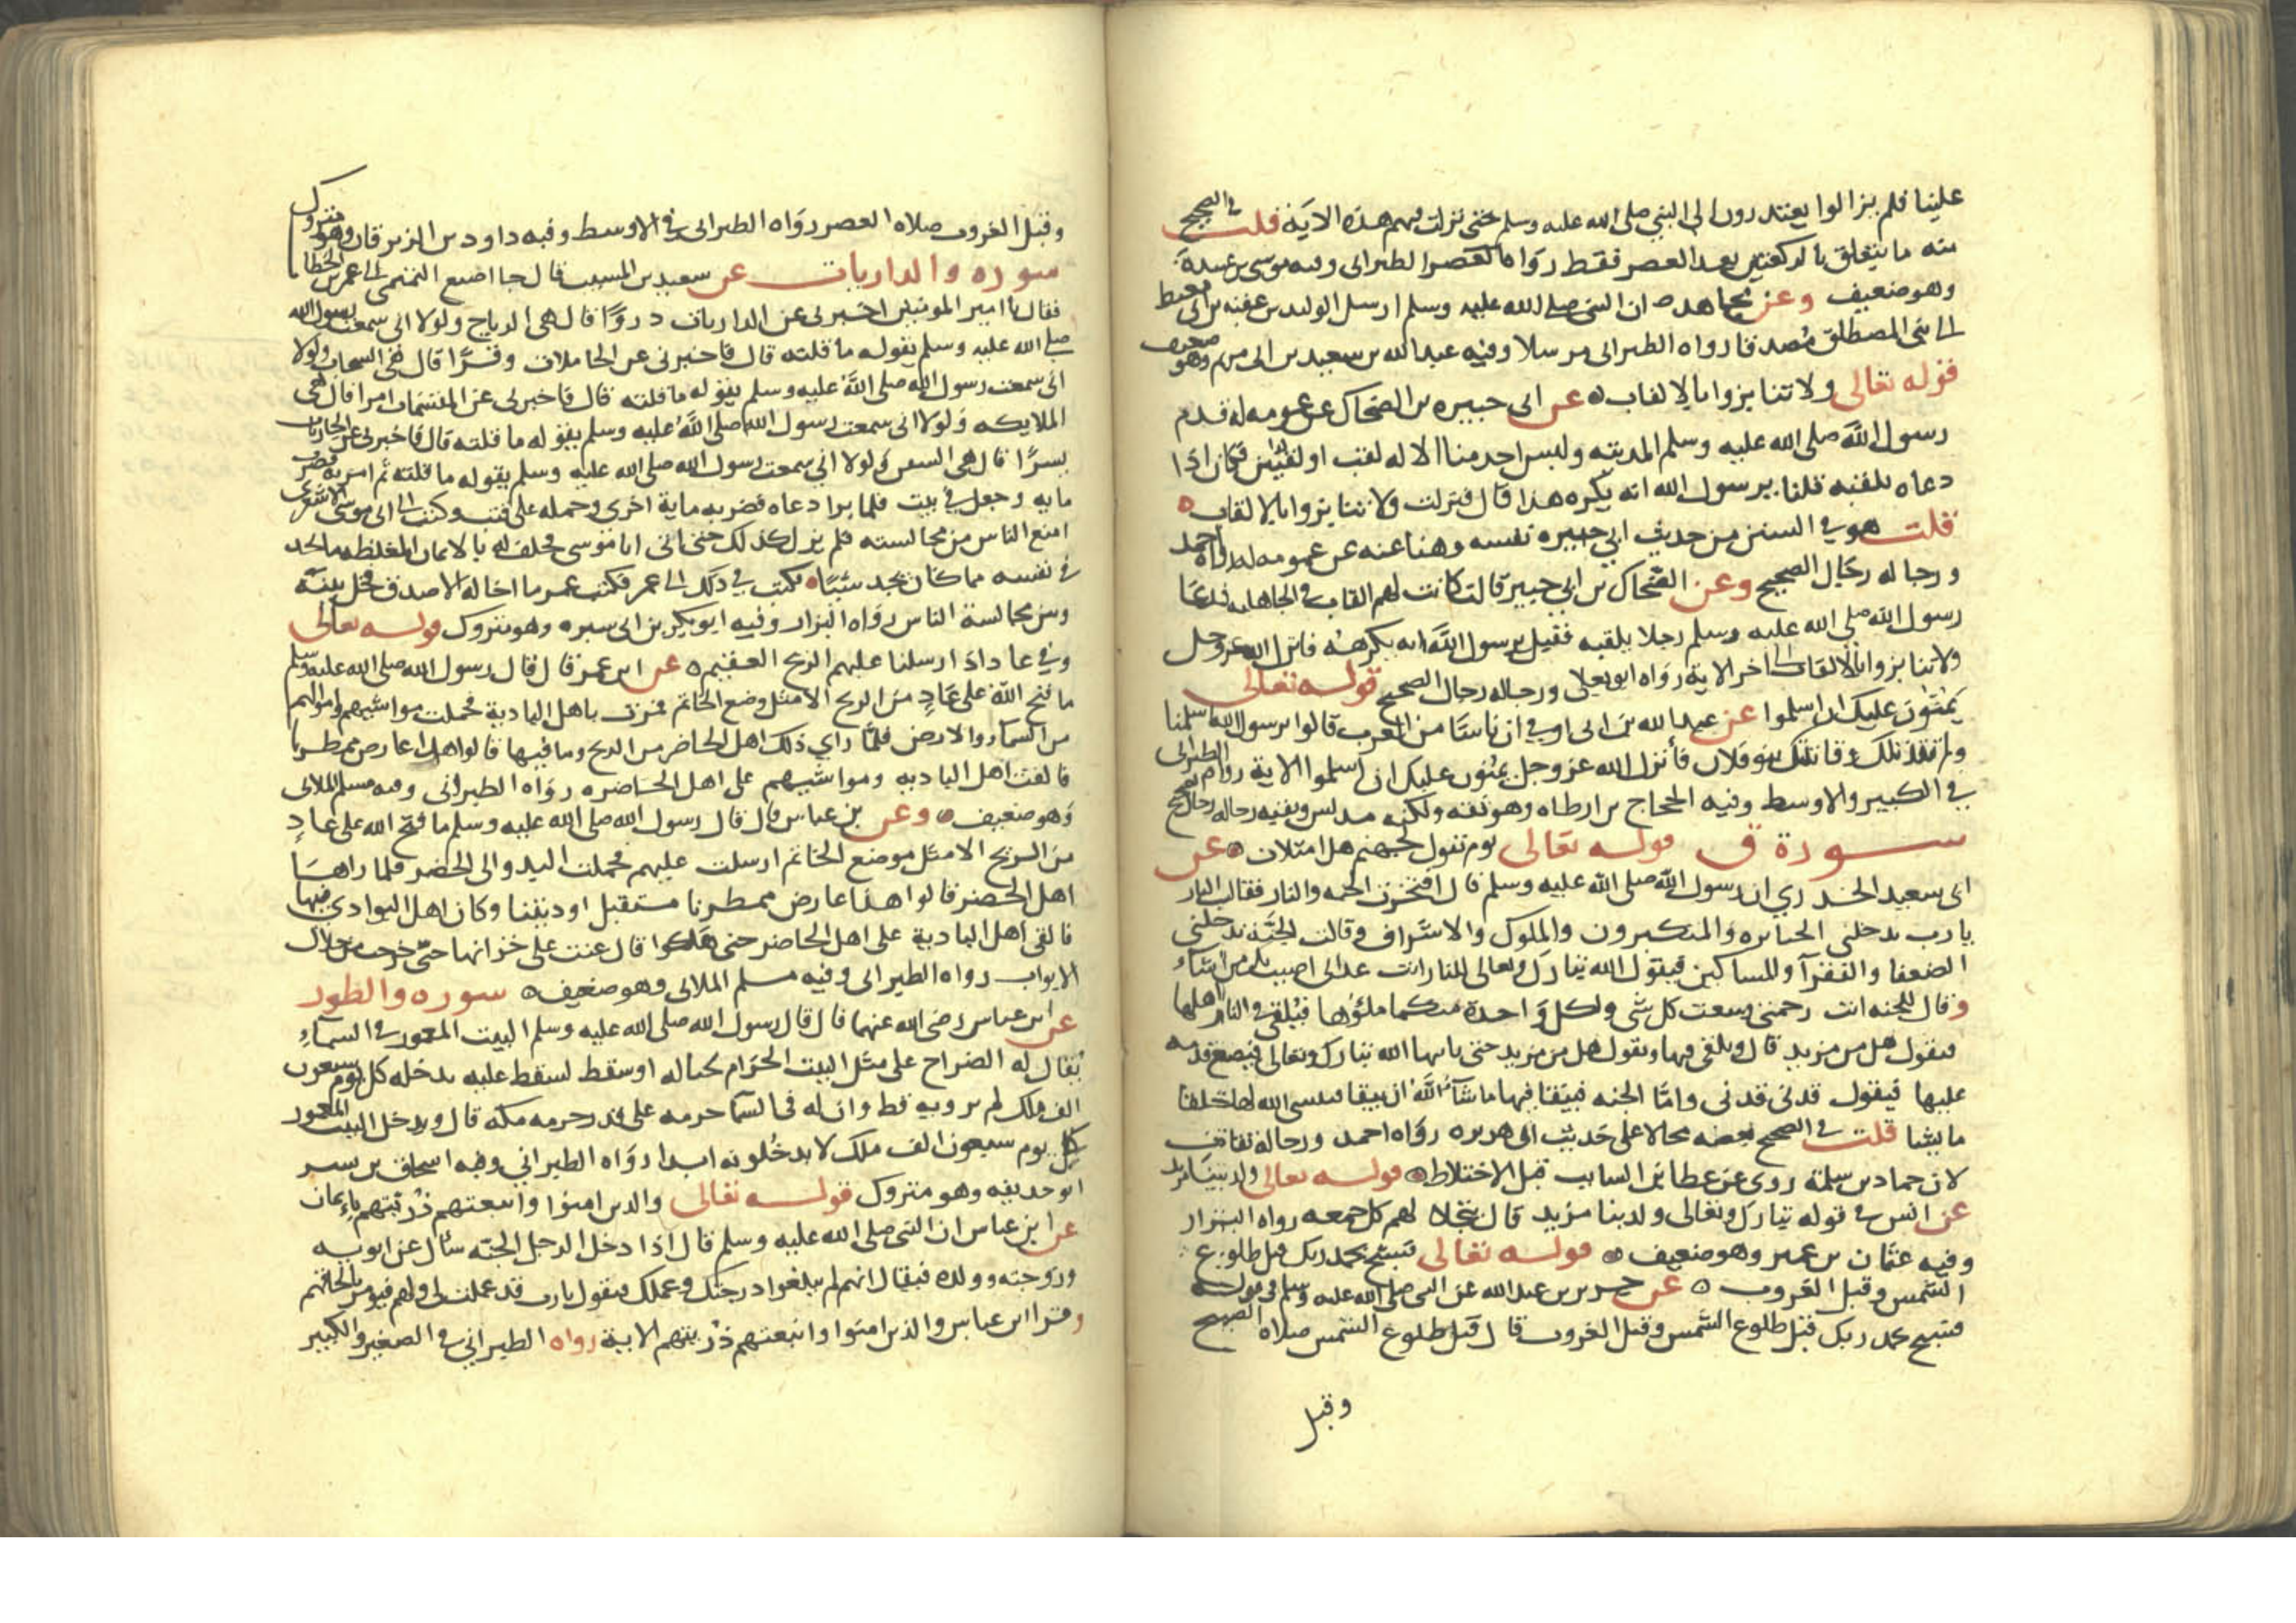 علينا فلم يزالوا يعتذرون الى النبي صلى الله عليه وسلم حتى نزلت فيهم هذه الاية قلت في الصحيح
منه ما يتعلق بالركعتين بعد العصر فقط رواه الطبراني وفيه موسى بن عبيدة
وهو ضعيف وعن مجاهد ان النبي صلى الله عليه وسلم ارسل الوليد بن عقبة بن ابي معيط
الى بني المصطلق مصدقا رواه الطبراني مرسلا وفيه عبد الله بن سعيد بن ابي مريم وهو ضعيف
قوله تعالى ولا تنابزوا بالالقاب عن ابي جبيره بن الضحاك عن عمومه له قدم
رسول الله صلى الله عليه وسلم المدينه وليس احد منا الا له لقب او لقبين فكان اذا
دعاه بلقبه قلنا يرسول الله انه يكره هذا قال فنزلت ولا تنابزوا بالالقاب
قلت هو في السنن من حديث ابي جبيره نفسه وهنا عنه عن عمومه له رواه احمد
ورجاله رجال الصحيح وعن الضحاك بن ابي جبير قال كانت لهم القاب في الجاهليه فدعا
رسول الله صلى الله عليه وسلم رجلا بلقبه فقيل يرسول الله انه يكرهه فانزل الله عز وجل
ولا تنابزوا بالالقاب الى اخر الاية رواه ابو يعلى ورجاله رجال الصحيح قوله تعالى
يمنون عليك ان اسلموا عن عبد الله بن ابي اوفي ان ناسا من العرب قالوا يرسول الله اسلمنا
ولم نقاتلك وقاتلتك بنو فلان فأنزل الله عز وجل يمنون عليك ان اسلموا الاية رواه الطبراني
في الكبير والاوسط وفيه الحجاج بن ارطاه وهو ثقه ولكنه مدلس وبقيه رجاله رجال الصحيح
سورة ق قوله تعالى يوم نقول لجهنم هل امتلات عن
ابي سعيد الخدري ان رسول الله صلى الله عليه وسلم قال افتخرت الجنه والنار فقالت النار
يارب يدخلني الجبابره والمتكبرون والملوك والاشراف وقالت الجنة يدخلني
الضعفا والفقرآ والمساكين فيقول الله تبارك وتعالى للنار انت عذابي اصيب بك من اشآء
وقال للجنه انت رحمتي وسعت كل شي ولكل واحدة منكما ملؤها فيلقى في النار اهلها
فيقول هل من مزيد قال ويلقى فيها وتقول هل من مزيد حتى ياتيها الله تبارك وتعالى فيضع قدمه
عليها فيقول قدني قدني واما الجنه فيبقا فيها ما شآء الله ان يبقا فينسى الله لها خلقا
ما يشا قلت في الصحيح بعضه محالا على حديث ابي هريره رواه احمد ورجاله ثقات
لان حماد بن سلمة روى عن عطا بن السايب قبل الاختلاط قوله تعالى ولدينا مزيد
عن انس في قوله تبارك وتعالى ولدينا مزيد قال يتجلا لهم كل جمعه رواه البزار
وفيه عثمان بن عمير وهو ضعيف قوله تعالى فسبح بحمد ربك قبل طلوع
الشمس وقبل الغروب عن جرير بن عبد الله عن النبي صلى الله عليه وسلم في قوله
فسبح بحمد ربك قبل طلوع الشمس وقبل الغروب قال قبل طلوع الشمس صلاه الصبح
وقبل
وقبل الغروب صلاه العصر رواه الطبراني في الاوسط وفيه داود بن الزبرقان وهو متروك
سوره والذاريات عن سعيد بن المسيب قال جا اصبغ التميمي الى عمر بن الخطاب
فقال يا امير المومنين اخبرني عن الذاريات ذروًا قال هي الرياح ولولا اني سمعت رسول الله
صلى الله عليه وسلم يقوله ما قلته قال فاخبرني عن الحاملات وقرًا قال هي السحاب ولولا
اني سمعت رسول الله صلى الله عليه وسلم يقوله ما قلته قال فاخبرني عن المقسمات امرا قال هي
الملايكه ولولا اني سمعت رسول الله صلى الله عليه وسلم يقوله ما قلته قال فاخبرني عن الجاريات
يسرًا قال هي السفن ولولا اني سمعت رسول الله صلى الله عليه وسلم يقوله ما قلته ثم امر به فضرب
مايه وجعل في بيت فلما برا دعاه فضربه ماية اخرى وحمله على قتب وكتب الى ابي موسى الاشعري
امنع الناس من مجالسته فلم يزل كذلك حتى اتى ابا موسى فحلف له بالايمان المغلظه ما يجد
في نفسه مما كان يجد شيًا فكتب في ذلك الى عمر فكتب عمر ما اخاله الا صدق فخل بينه
وبين مجالسة الناس رواه البزار وفيه ابو بكر بن ابي سبره وهو متروك قوله تعالى
وفي عاد اذ ارسلنا عليهم الريح العقيم عن ابن عمر قال قال رسول الله صلى الله عليه وسلم
ما فتح الله على عادٍ من الريح الا مثل موضع الخاتم فمرت باهل البادية فحملت مواشيهم واموالهم
من السمآء والارض فلما راي ذلك اهل الحاضر من الريح وما فيها قالوا هذا عارض ممطرنا
فالقت اهل الباديه ومواشيهم على اهل الحاضره رواه الطبراني وفيه مسلم الملائي
وهو ضعيف وعن بن عباس قال قال رسول الله صلى الله عليه وسلم ما فتح الله على عادٍ
من الريح الا مثل موضع الخاتم ارسلت عليهم فحملت البدو الى الحضر فلما راها
اهل الحضر قالوا هذا عارض ممطرنا مستقبل اوديتنا وكان اهل البوادي فيها
فالقى أهل البادية على اهل الحاضر حتى هلكوا قال عتت على خزانها حتى خرجت من خلال
الابواب رواه الطبراني وفيه مسلم الملائي وهو ضعيف سوره والطور
عن ابن عباس رضي الله عنهما قال قال رسول الله صلى الله عليه وسلم البيت المعمور في السمآء
يقال له الضراح على مثل البيت الحرام بحياله لو سقط لسقط عليه يدخله كل يوم سبعون
الف ملك لم يروه قط وان له في السما حرمه على قدر حرمه مكه قال ويدخل البيت المعمور
كل يوم سبعون الف ملك لا يدخلونه ابدا رواه الطبراني وفيه اسحاق بن بشر
ابو حذيفه وهو متروك قوله تعالى والذين امنوا واتبعتهم ذريتهم بإيمان
عن ابن عباس ان النبي صلى الله عليه وسلم قال اذا دخل الرجل الجنة سأل عن ابويه
وزوجته وولده فيقال انهم لم يبلغوا درجتك وعملك فيقول يارب قد عملت لي ولهم فيومر بالحاقهم
وقرا ابن عباس والذين امنوا واتبعتهم ذريتهم الاية رواه الطبراني في الصغير والكبير